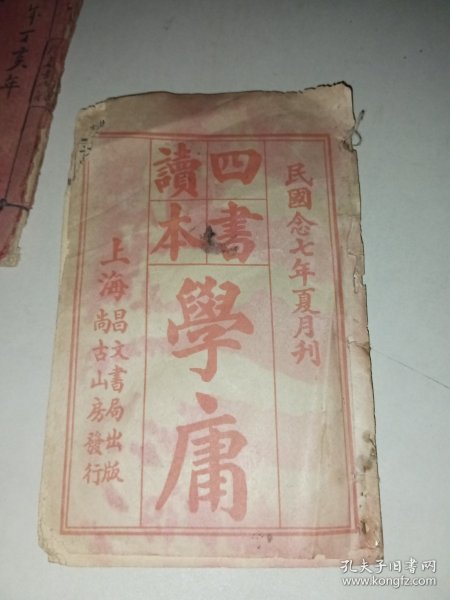 民國念七年夏月刊
四書
讀本
學庸
上海
昌文書局出版
尚古山房發行
丁亥年
孔夫子旧书网
www.kongfz.com